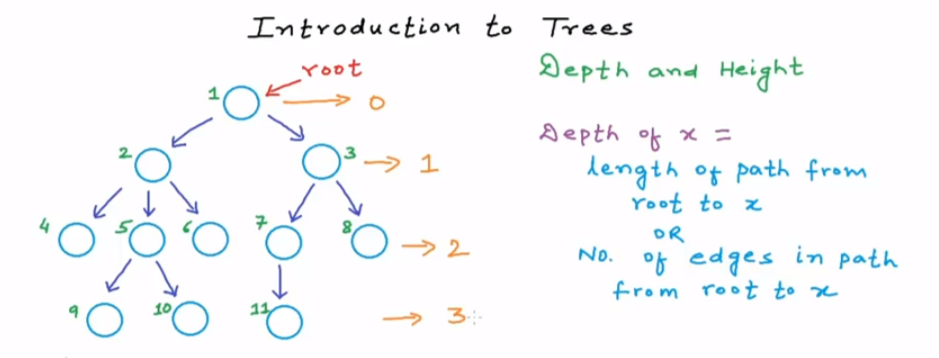 Introduction to Trees
root
1
→ 0
2
3
→ 1
4
5
6
7
8
→ 2
9
10
11
→ 3
Depth and Height
Depth of x =
length of path from
root to x
OR
No. of edges in path
from root to x